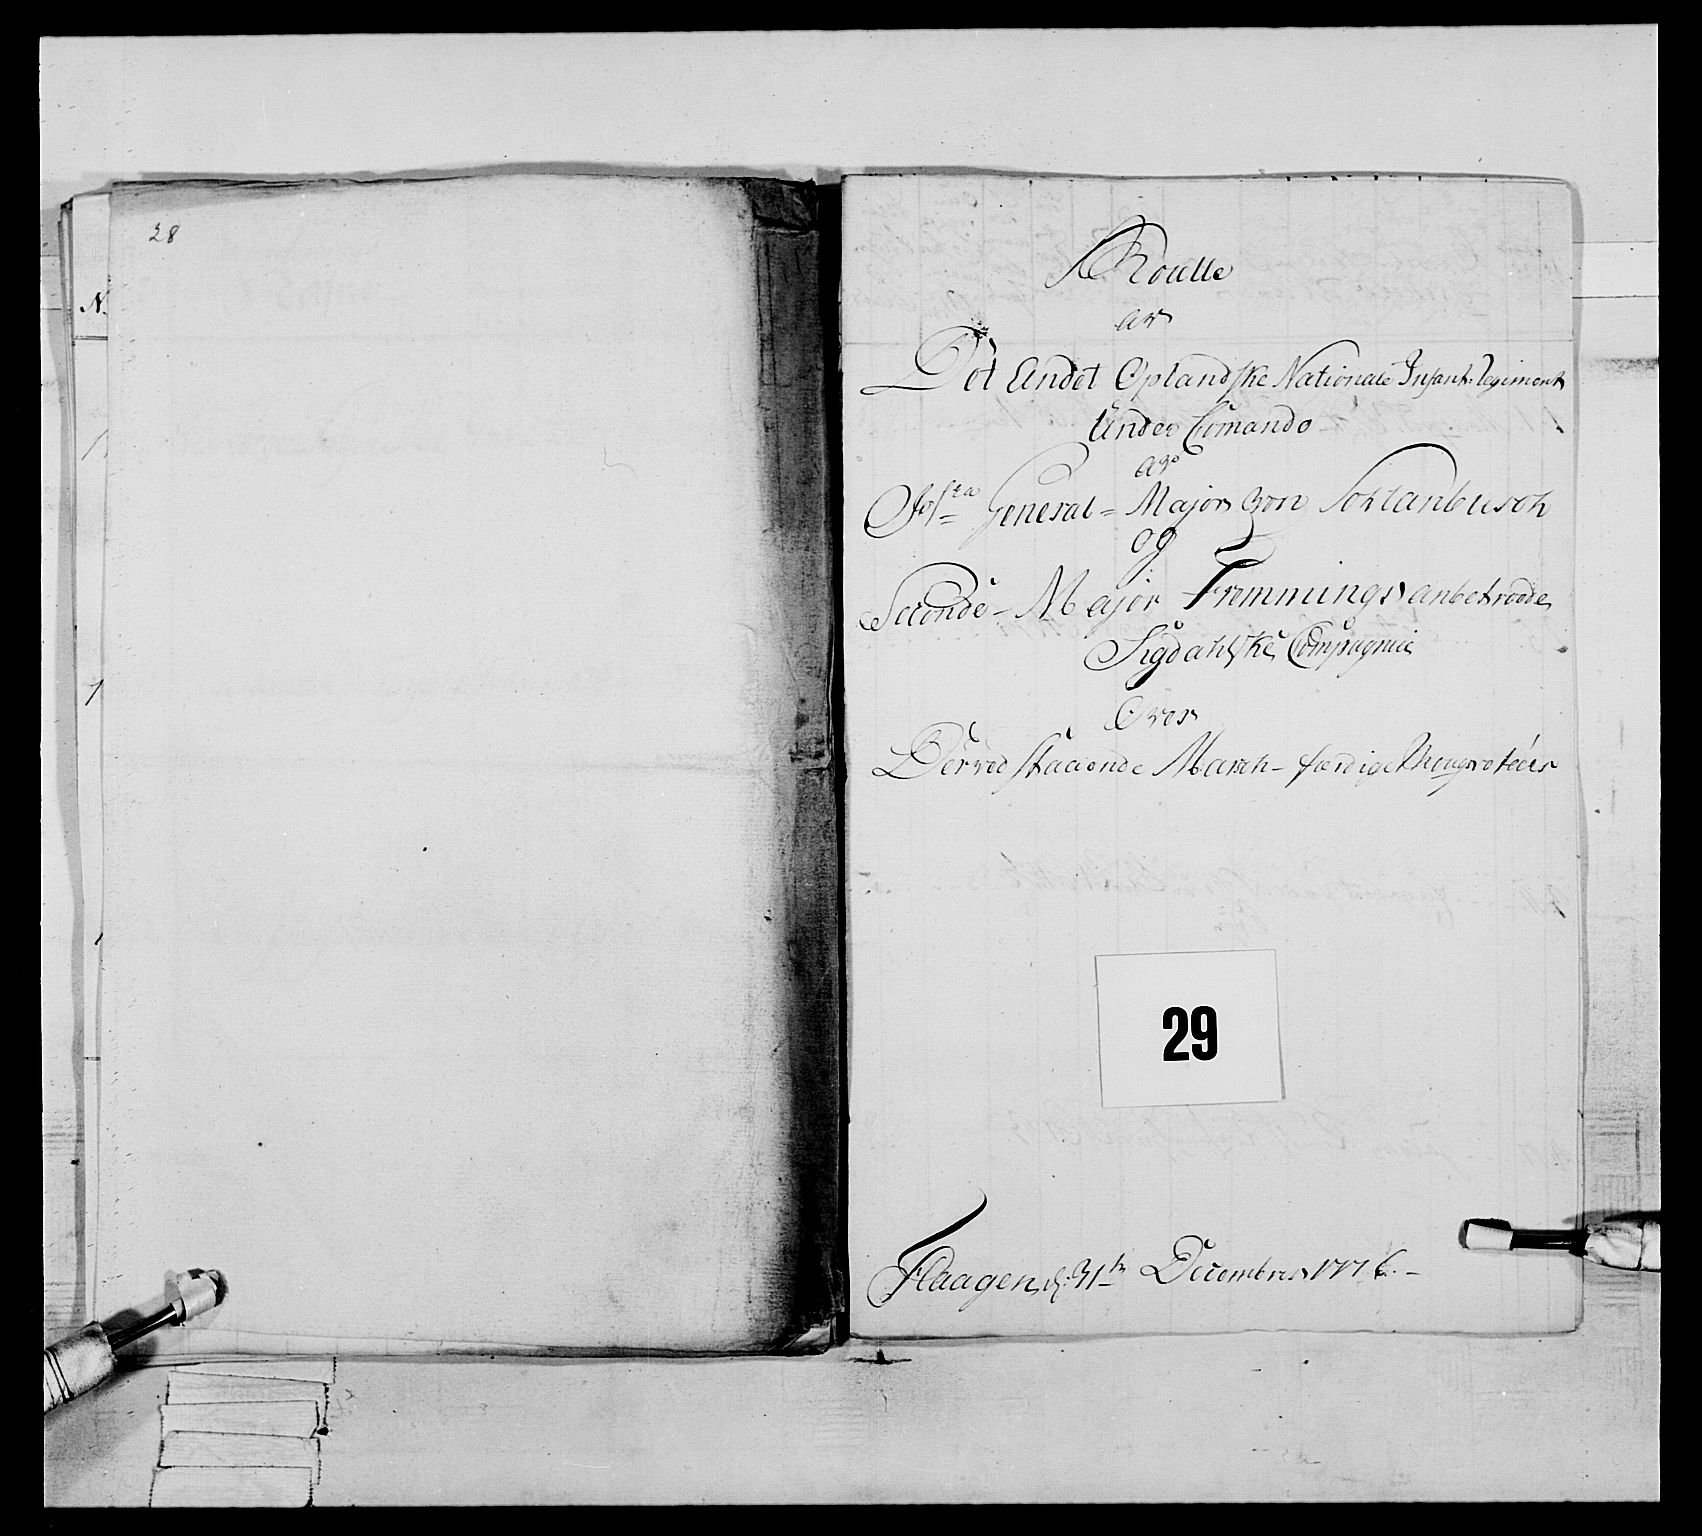 28
N.
Roulle
av
Det Andet Oplandske Nationale Infant: Regiment
Under Comando
av
General-Major von Schlanbusch
og
Seconde-Major Fremmings anbetroede
Sigdahlske Compagnie
Over
Derved staaende March-færdige
29
Flaagen d: 31te Decembris 1776.